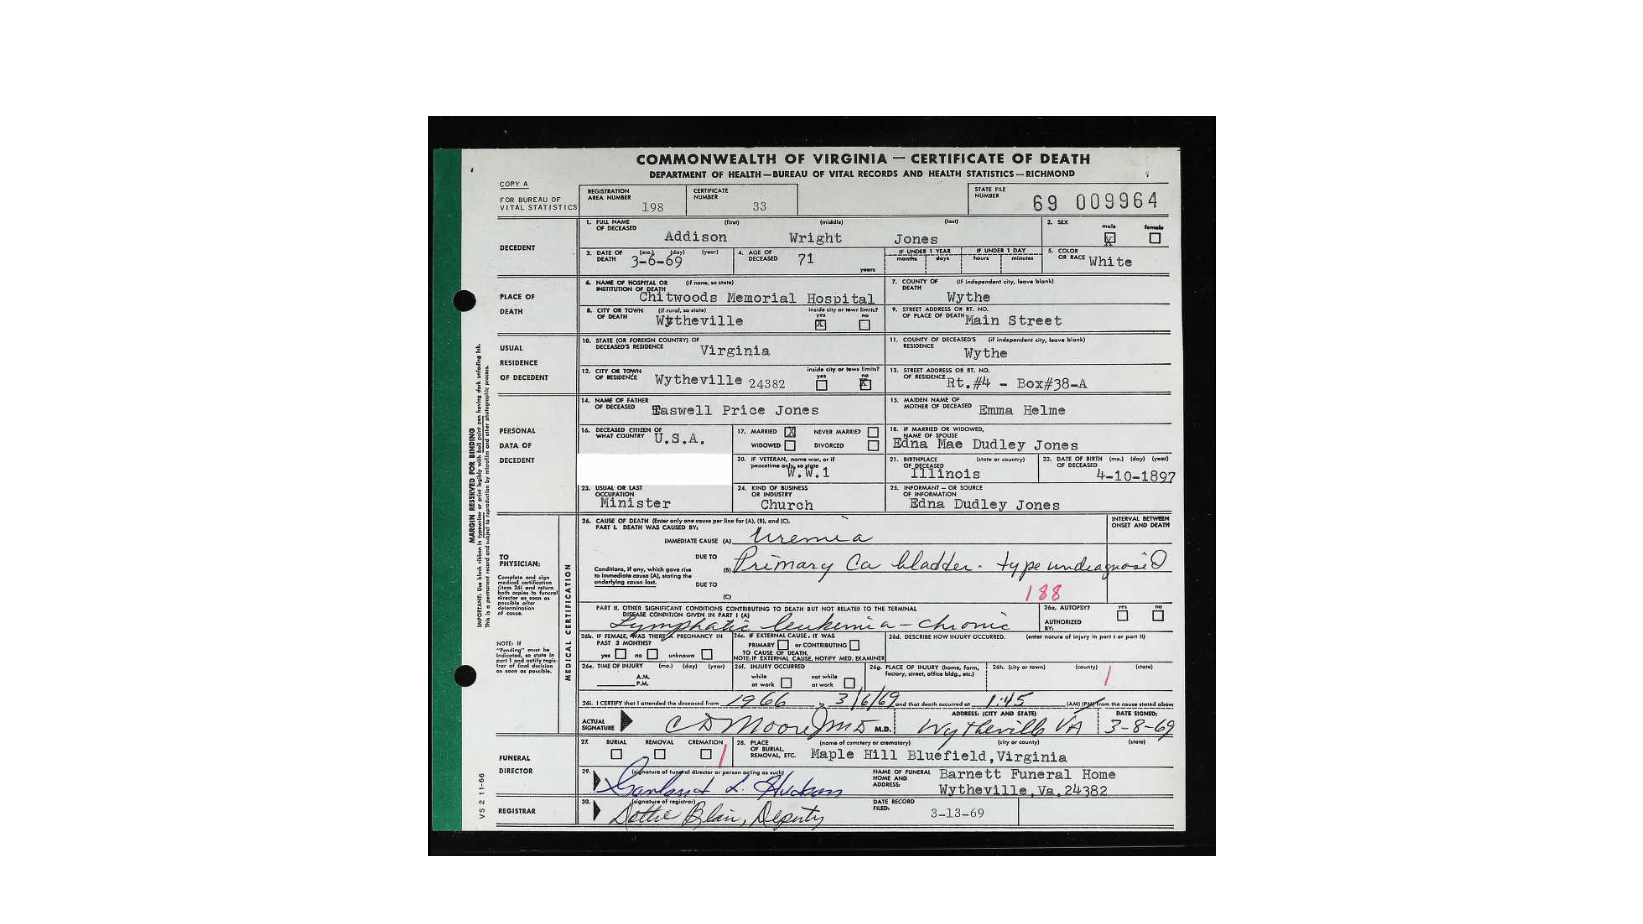 COMMONWEALTH OF VIRGINIA — CERTIFICATE OF DEATH
DEPARTMENT OF HEALTH—BUREAU OF VITAL RECORDS AND HEALTH STATISTICS—RICHMOND
COPY A
FOR BUREAU OF VITAL STATISTICS
REGISTRATION AREA NUMBER 198
CERTIFICATE NUMBER 33
STATE FILE NUMBER 69 009964
DECEDENT
1. FULL NAME OF DECEASED (first) (middle) (last) Addison Wright Jones
2. SEX male X female
3. DATE OF DEATH (mo.) (day) (year) 3-6-69
4. AGE OF DECEASED 71 years
IF UNDER 1 YEAR months days
IF UNDER 1 DAY hours minutes
5. COLOR OR RACE White
PLACE OF DEATH
6. NAME OF HOSPITAL OR INSTITUTION OF DEATH (if none, so state) Chitwoods Memorial Hospital
7. COUNTY OF DEATH (if independent city, leave blank) Wythe
8. CITY OR TOWN OF DEATH (if rural, so state) Wytheville
inside city or town limits? yes X no
9. STREET ADDRESS OR RT. NO. OF PLACE OF DEATH Main Street
USUAL RESIDENCE OF DECEDENT
10. STATE (OR FOREIGN COUNTRY) OF DECEASED'S RESIDENCE Virginia
11. COUNTY OF DECEASED'S RESIDENCE (if independent city, leave blank) Wythe
12. CITY OR TOWN OF RESIDENCE Wytheville 24382
inside city or town limits? yes no X
13. STREET ADDRESS OR RT. NO. OF RESIDENCE Rt.#4 - Box#38-A
PERSONAL DATA OF DECEDENT
14. NAME OF FATHER OF DECEASED Taswell Price Jones
15. MAIDEN NAME OF MOTHER OF DECEASED Emma Helme
16. DECEASED CITIZEN OF WHAT COUNTRY U.S.A.
17. MARRIED X NEVER MARRIED
WIDOWED DIVORCED
18. IF MARRIED OR WIDOWED, NAME OF SPOUSE Edna Mae Dudley Jones
20. IF VETERAN, name war, or if peacetime only, so state W.W.1
21. BIRTHPLACE OF DECEASED (state or country) Illinois
22. DATE OF BIRTH OF DECEASED (mo.) (day) (year) 4-10-1897
23. USUAL OR LAST OCCUPATION Minister
24. KIND OF BUSINESS OR INDUSTRY Church
25. INFORMANT—OR SOURCE OF INFORMATION Edna Dudley Jones
MARGIN RESERVED FOR BINDING
MEDICAL CERTIFICATION
TO PHYSICIAN:
Complete and sign medical certification (item 26) and return both copies to funeral director as soon as possible after determination of cause.
NOTE: If "Pending" must be indicated, so state in part I and notify registrar of final decision as soon as possible.
26. CAUSE OF DEATH (Enter only one cause per line for (A), (B), and (C).
PART I. DEATH WAS CAUSED BY:
INTERVAL BETWEEN ONSET AND DEATH
IMMEDIATE CAUSE (A) Uremia
DUE TO
(B) Primary Ca bladder - type undiagnosed
Conditions, if any, which gave rise to immediate cause (A), stating the underlying cause last.
DUE TO
(C)
188
PART II. OTHER SIGNIFICANT CONDITIONS CONTRIBUTING TO DEATH BUT NOT RELATED TO THE TERMINAL DISEASE CONDITION GIVEN IN PART I (A)
Lymphatic leukemia - chronic
26a. AUTOPSY? yes no
AUTHORIZED BY:
26b. IF FEMALE, WAS THERE A PREGNANCY IN PAST 3 MONTHS?
yes no unknown
26c. IF EXTERNAL CAUSE, IT WAS
PRIMARY or CONTRIBUTING
TO CAUSE OF DEATH.
NOTE: IF EXTERNAL CAUSE, NOTIFY MED. EXAMINER
26d. DESCRIBE HOW INJURY OCCURRED. (enter nature of injury in part I or part II)
26e. TIME OF INJURY (mo.) (day) (year)
A.M.
P.M.
26f. INJURY OCCURRED
while at work not while at work
26g. PLACE OF INJURY (home, farm, factory, street, office bldg., etc.)
26h. (city or town) (county) (state)
26i. I CERTIFY that I attended the deceased from 1966 to 3/6/69 and that death occurred at 1:45 (AM) (PM) from the cause stated above
ACTUAL SIGNATURE C D Moore Jr MD M.D.
ADDRESS: (CITY AND STATE) Wytheville VA
DATE SIGNED: 3-8-69
FUNERAL DIRECTOR
27. BURIAL REMOVAL CREMATION
28. PLACE OF BURIAL, REMOVAL, ETC. (name of cemetery or crematory) (city or county) (state)
Maple Hill Bluefield,Virginia
29. (signature of funeral director or person acting as such) Garland L. Hudson
NAME OF FUNERAL HOME AND ADDRESS: Barnett Funeral Home
Wytheville,Va.24382
REGISTRAR
30. (signature of registrar) Dottie Blair, Deputy
DATE RECORD FILED: 3-13-69
VS 2 11-66